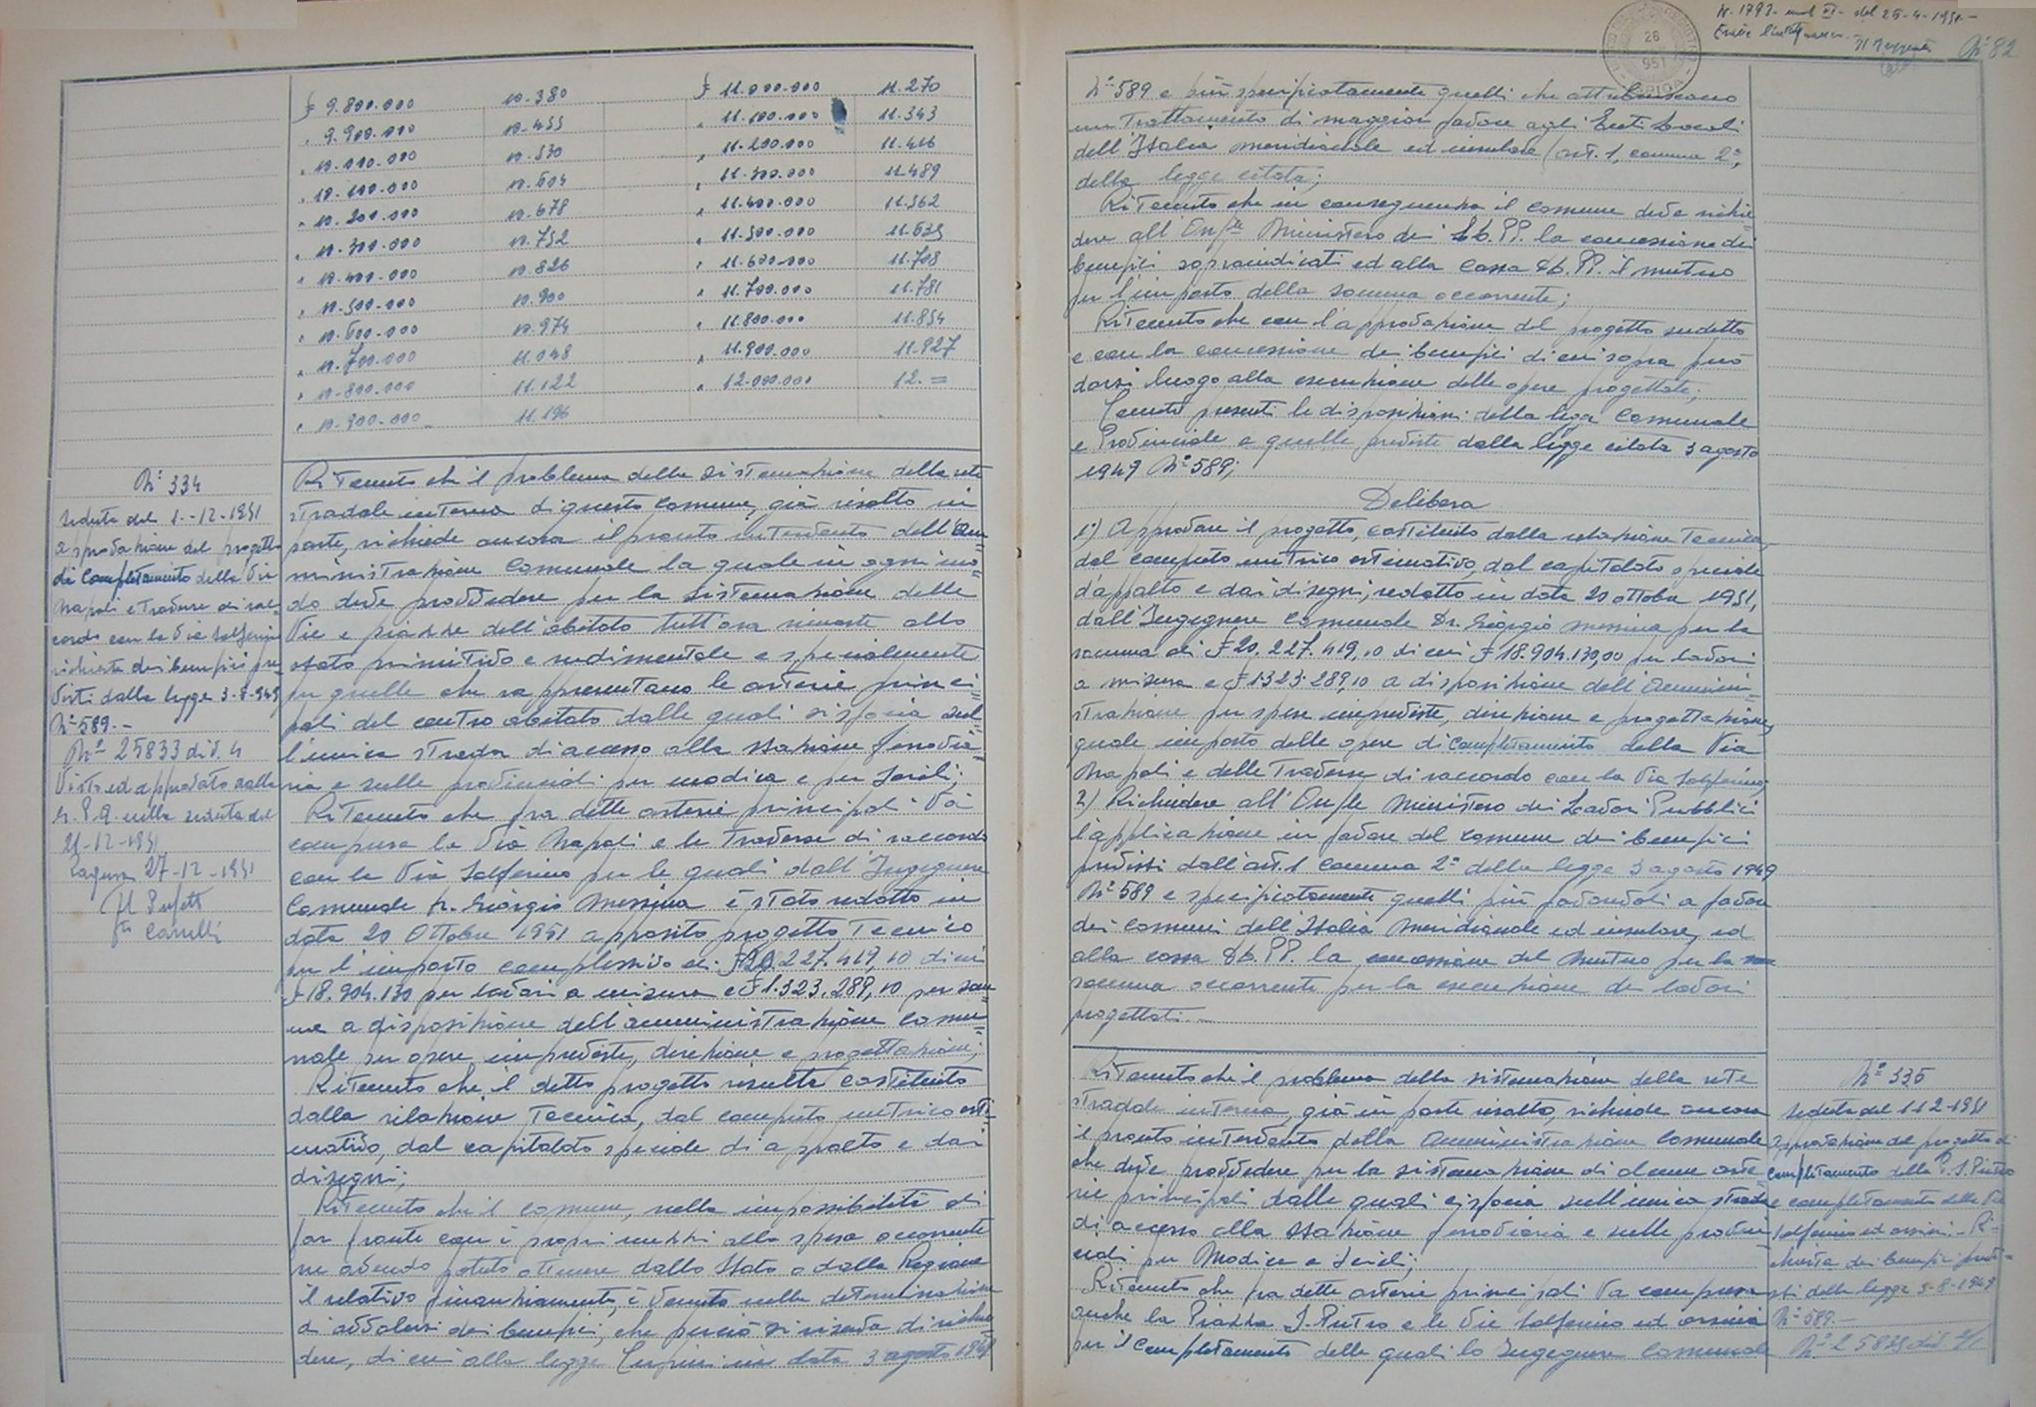 £ 9.800.000 10.380 £ 11.000.000 11.270
" 9.900.000 10.455 " 11.100.000 11.343
" 10.000.000 10.530 " 11.200.000 11.416
" 10.100.000 10.604 " 11.300.000 11.489
" 10.200.000 10.678 " 11.400.000 11.562
" 10.300.000 10.752 " 11.500.000 11.635
" 10.400.000 10.826 " 11.600.000 11.708
" 10.500.000 10.900 " 11.700.000 11.781
" 10.600.000 10.974 " 11.800.000 11.854
" 10.700.000 11.048 " 11.900.000 11.927
" 10.800.000 11.122 " 12.000.000 12.=
" 10.900.000 11.196
N° 334
Seduta del 1-12-1951
Approvazione del progetto
di Completamento della Via
Napoli e Traverse di rac=
cordo con la Via Solferino
richiesta dei benefici pre
visti dalla legge 3-8-949
N° 589.-
N° 25833 div. 4
Visto ed approvato dalla
G.P.A. nella seduta del
21-12-1951
Ragusa 27-12-1951
Il Prefetto
Ritenuto che il problema della sistemazione della rete
stradale interna di questo Comune, già risolto in
parte, richiede ancora il pronto intervento dell'Am=
ministrazione Comunale la quale in ogni mo=
do deve provvedere per la sistemazione delle
Vie e piazze dell'abitato tutt'ora rimaste allo
stato primitivo e rudimentale e specialmente
per quelle che rappresentano le arterie princi
pali del centro abitato dalle quali si sfocia sul=
l'unica strada di accesso alla stazione ferrovia=
ria e sulle provinciali per Modica e per Scicli;
Ritenuto che fra dette arterie principali va
compresa la Via Napoli e le Traverse di raccordo
con la Via Solferino per le quali dall'Ingegnere
Comunale Dr. Giorgio Messina è stato redatto in
data 20 Ottobre 1951 apposito progetto Tecnico
per l'importo complessivo di £ 20.227.419,10 di cui
£ 18.904.130 per lavori a misura e £ 1.323.289,10 per som=
me a disposizione dell'amministrazione Comu=
nale per opere impreviste, direzione e progettazione;
Ritenuto che il detto progetto risulta costituito
dalla relazione Tecnica, dal computo metrico esti=
mativo, dal capitolato speciale di appalto e dai
disegni;
Ritenuto che il Comune, nella impossibilità di
far fronte con i propri mezzi alla spesa occorrente
ne avendo potuto ottenere dallo Stato o dalla Regione
il relativo finanziamento, è venuto nella determinazione
di avvalersi dei benefici, che perciò si riserva di richie
dere, di cui alla legge Tupini in data 3 agosto 1949
N. 1793 mod VI- del 26-4-1951-
N° 82
26
951
N° 589 e più specificatamente quelli che attribuiscono
un Trattamento di maggior favore agli Enti Locali
dell'Italia meridionale ed insulare (art. 1, comma 2°,
della legge citata;
Ritenuto che in conseguenza il Comune deve richie
dere all'On/le Ministero dei LL. PP. la concessione dei
benefici sopraindicati ed alla Cassa DD. PP. il mutuo
per l'importo della somma occorrente;
Ritenuto che con l'approvazione del progetto suddetto
e con la concessione dei benefici di cui sopra può
darsi luogo alla esecuzione delle opere progettate;
Tenute presenti le disposizioni della legge Comunale
e Provinciale e quelle previste dalla legge citata 3 agosto
1949 N° 589;
Delibera
1°) Approvare il progetto, costituito dalla relazione Tecnica,
dal computo metrico estimativo, dal capitolato speciale
d'appalto e dai disegni, redatto in data 20 ottobre 1951,
dall'Ingegnere Comunale Dr. Giorgio Messina per la
somma di £ 20.227.419,10 di cui £ 18.904.130,00 per lavori
a misura e £ 1.323.289,10 a disposizione dell'Ammini=
strazione per spese impreviste, direzione e progettazione,
quale importo delle opere di Completamento della Via
Napoli e delle Traverse di raccordo con la Via Solferino;
2) Richiedere all'On/le Ministero dei Lavori Pubblici
l'applicazione in favore del Comune dei benefici
previsti dall'art. 1 comma 2° della legge 3 agosto 1949
N° 589 e specificatamente quelli più favorevoli a favore
dei comuni dell'Italia Meridionale ed insulare, ed
alla cassa DD. PP. la concessione del mutuo per la
somma occorrente per la esecuzione dei lavori
progettati.-
Ritenuto che il problema della sistemazione della rete
stradale interna, già in parte risolto, richiede ancora
il pronto intervento della Amministrazione Comunale
che deve provvedere per la sistemazione di alcune arte
rie principali dalle quali si sfocia sull'unica strada
di accesso alla stazione ferroviaria e sulle provin=
ciali per Modica e Scicli;
Ritenuto che fra dette arterie principali va compresa
anche la Piazza S. Pietro e le Vie Solferino ed Orsini
per il Completamento delle quali lo Ingegnere Comunale
N° 335
Seduta del 1-12-1951
Approvazione del progetto di
completamento della P. S. Pietro
e completamento delle Vie
Solferino ed Orsini - Ri=
chiesta dei benefici previ=
sti dalla legge 3-8-1949
N° 589.-